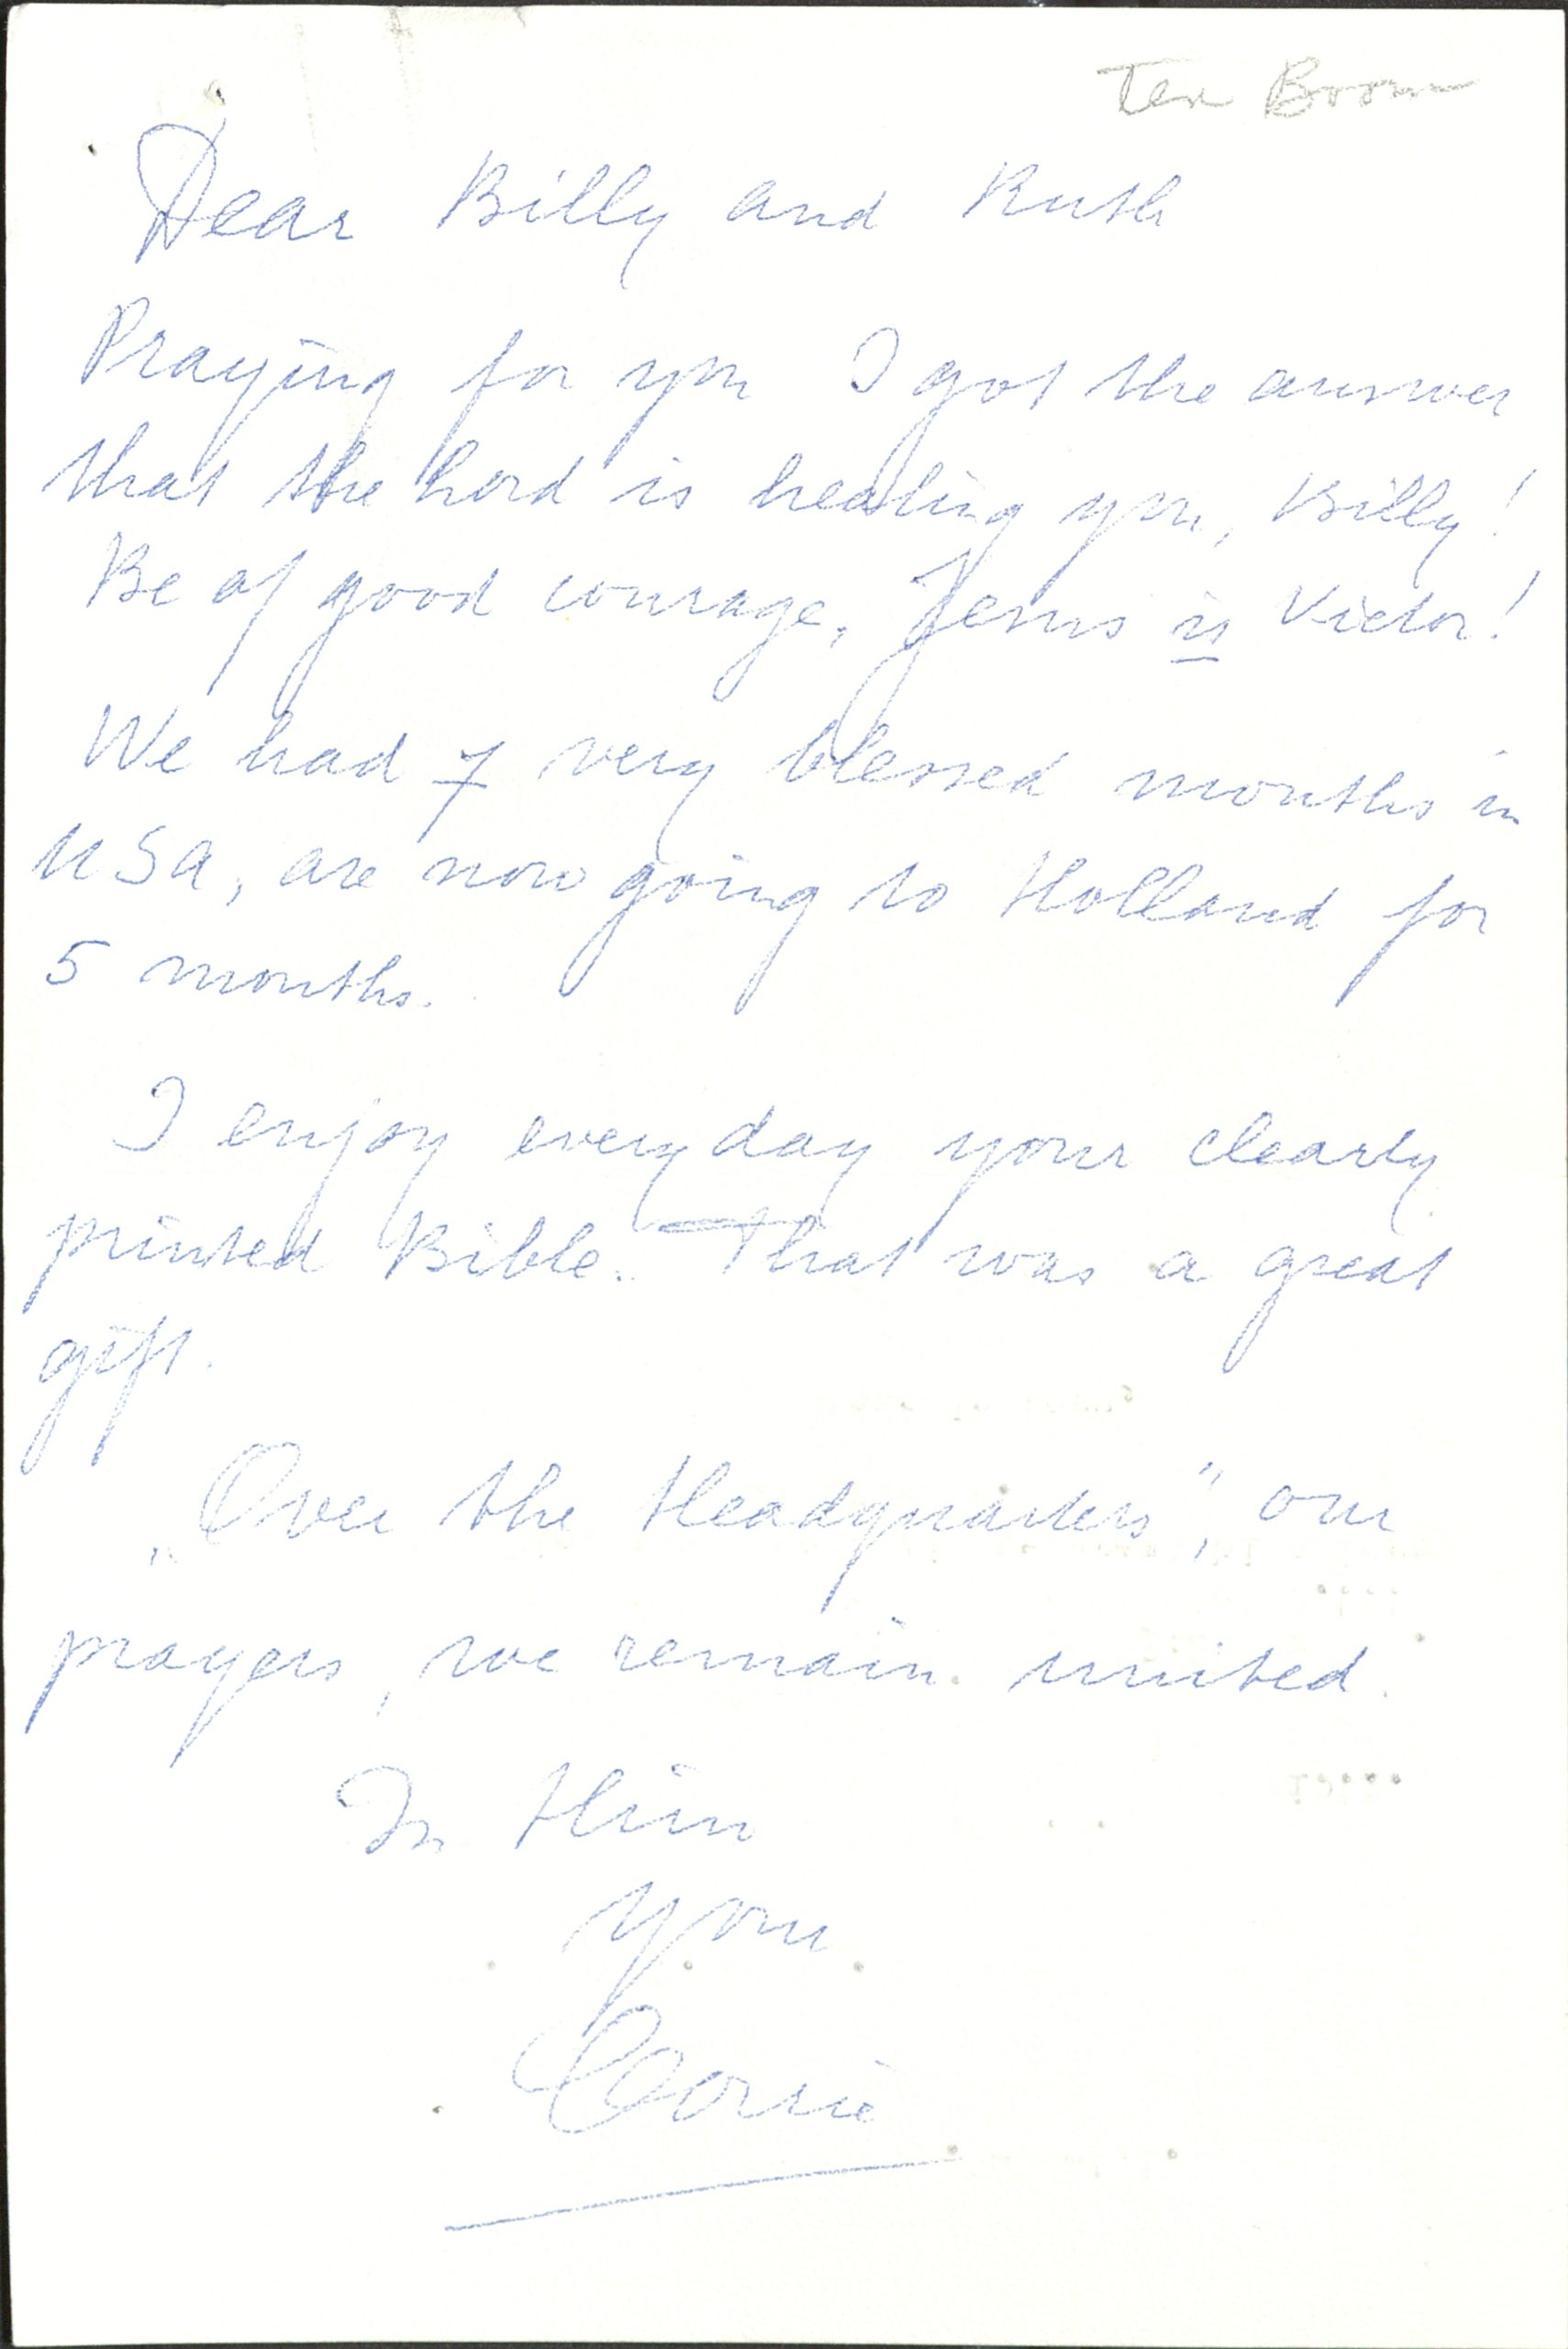 Ten Boom
Dear Billy and Ruth
Praying for you I got the answer
that the Lord is healing you, Billy!
Be of good courage, Jesus is Victor!
We had 7 very blessed months in
USA, are now going to Holland for
5 months.
I enjoy every day your clearly
printed Bible. That was a great
gift.
„Over the Headquarters", our
prayers, we remain united.
In Him
your
Corrie